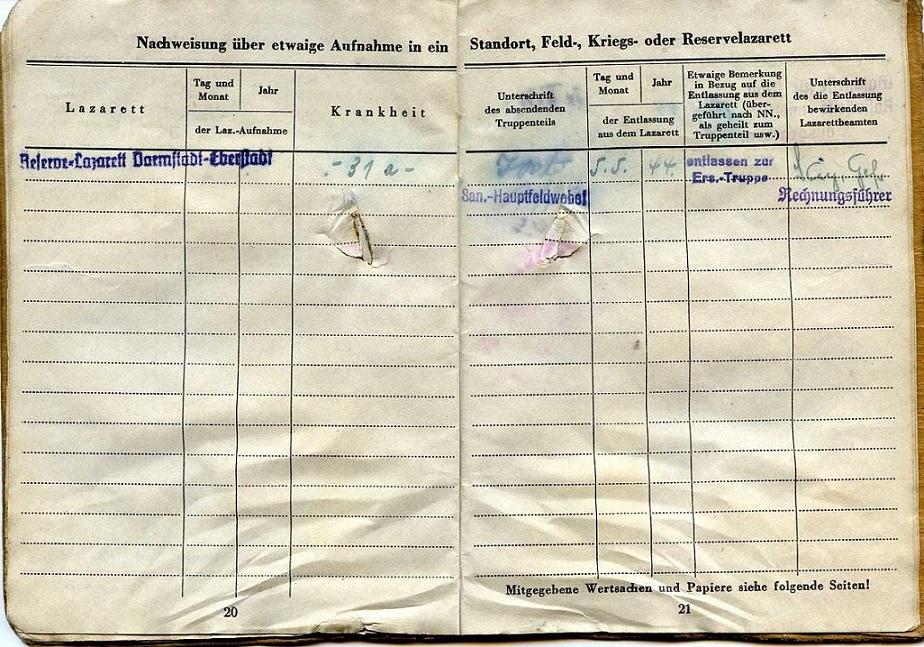 Nachweisung über etwaige Aufnahme in ein Standort, Feld-, Kriegs- oder Reservelazarett
Lazarett
Tag und
Monat
Jahr
der Laz.-Aufnahme
Krankheit
Unterschrift
des absendenden
Truppenteils
Tag und
Monat
Jahr
der Entlassung
aus dem Lazarett
Etwaige Bemerkung
in Bezug auf die
Entlassung aus dem
Lazarett (über-
geführt nach NN.,
als geheilt zum
Truppenteil usw.)
Unterschrift
des die Entlassung
bewirkenden
Lazarettbeamten
Reserve-Lazarett Darmstadt-Eberstadt
- 31 a -
5.5.
44.
entlassen zur
Ers.-Truppe
San.-Hauptfeldwebel
Rechnungsführer
Mitgegebene Wertsachen und Papiere siehe folgende Seiten!
20
21